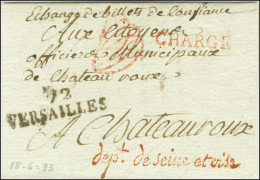 Echange de billets de Confiance
Aux Citoyens
CHARGÉ
officiers municipaux
de Chateauroux
72
VERSAILLES
A Chateauroux
dept. de seine et oise
18-6-93